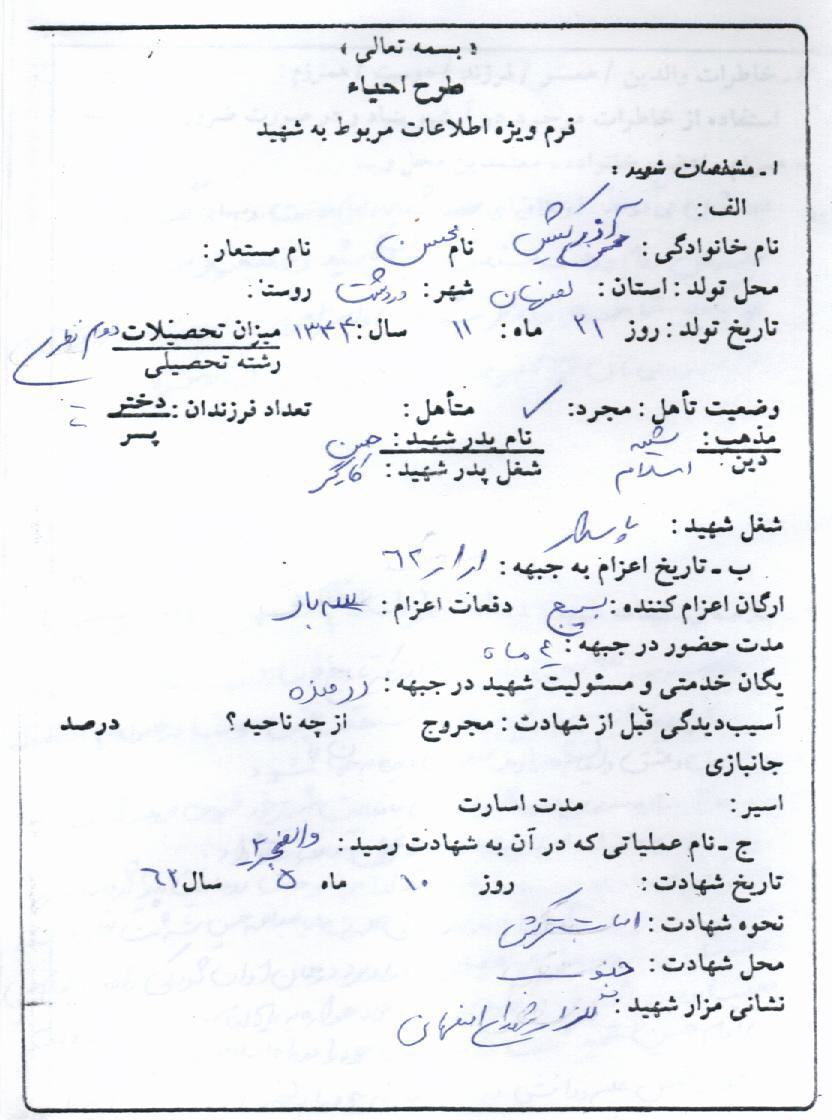 « بسمه تعالی »
طرح احیاء
فرم ویژه اطلاعات مربوط به شهید
۱ـ مشخصات شهید :
الف :
نام خانوادگی : نام محسن نام مستعار :
محل تولد : استان : اصفهان شهر : روستا :
تاریخ تولد : روز ۲۱ ماه : ۱۱ سال : ۱۳۴۴ میزان تحصیلات دوم نظری
رشته تحصیلی
وضعیت تأهل : مجرد : ✓ متأهل : تعداد فرزندان : دختر
پسر
مذهب : شیعه نام پدر شهید : حسین
دین : اسلام شغل پدر شهید : کارگر
شغل شهید : پاسدار
ب ـ تاریخ اعزام به جبهه : ۶۲
ارگان اعزام کننده : بسیج دفعات اعزام : سه بار
مدت حضور در جبهه : ۴ ماه
یگان خدمتی و مسئولیت شهید در جبهه : رزمنده
آسیب‌دیدگی قبل از شهادت : مجروح از چه ناحیه ؟ درصد
جانبازی
اسیر : مدت اسارت
ج ـ نام عملیاتی که در آن به شهادت رسید : والفجر ۲
تاریخ شهادت : روز ۱۰ ماه ۵ سال ۶۲
نحوه شهادت : اصابت ترکش
محل شهادت :
نشانی مزار شهید : گلزار شهدای اصفهان